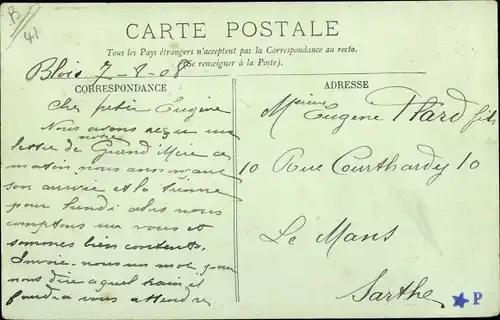 B
41
CARTE POSTALE
Tous les Pays étrangers n'acceptent pas la Correspondance au recto.
(Se renseigner à la Poste).
Blois 7-8-08
CORRESPONDANCE
Cher petit Eugène
Nous avons reçu une
lettre de notre Grand'Mère ce
matin nous annonçant
son arrivée et la tienne
pour lundi alors nous
comptons sur vous et
sommes bien contents.
Envoie-nous un mot pour
nous dire à quel train il
faudra vous attendre
ADRESSE
Monsieur Eugène Plard fils
10 Rue Courthardy 10
Le Mans
Sarthe
P